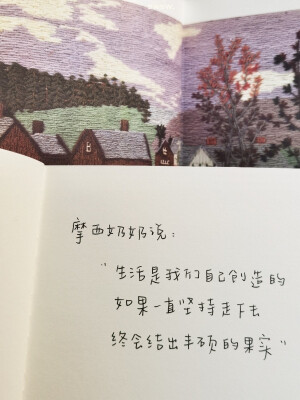 摩西奶奶说：
“生活是我们自己创造的
如果一直坚持走下去
终会结出丰硕的果实”